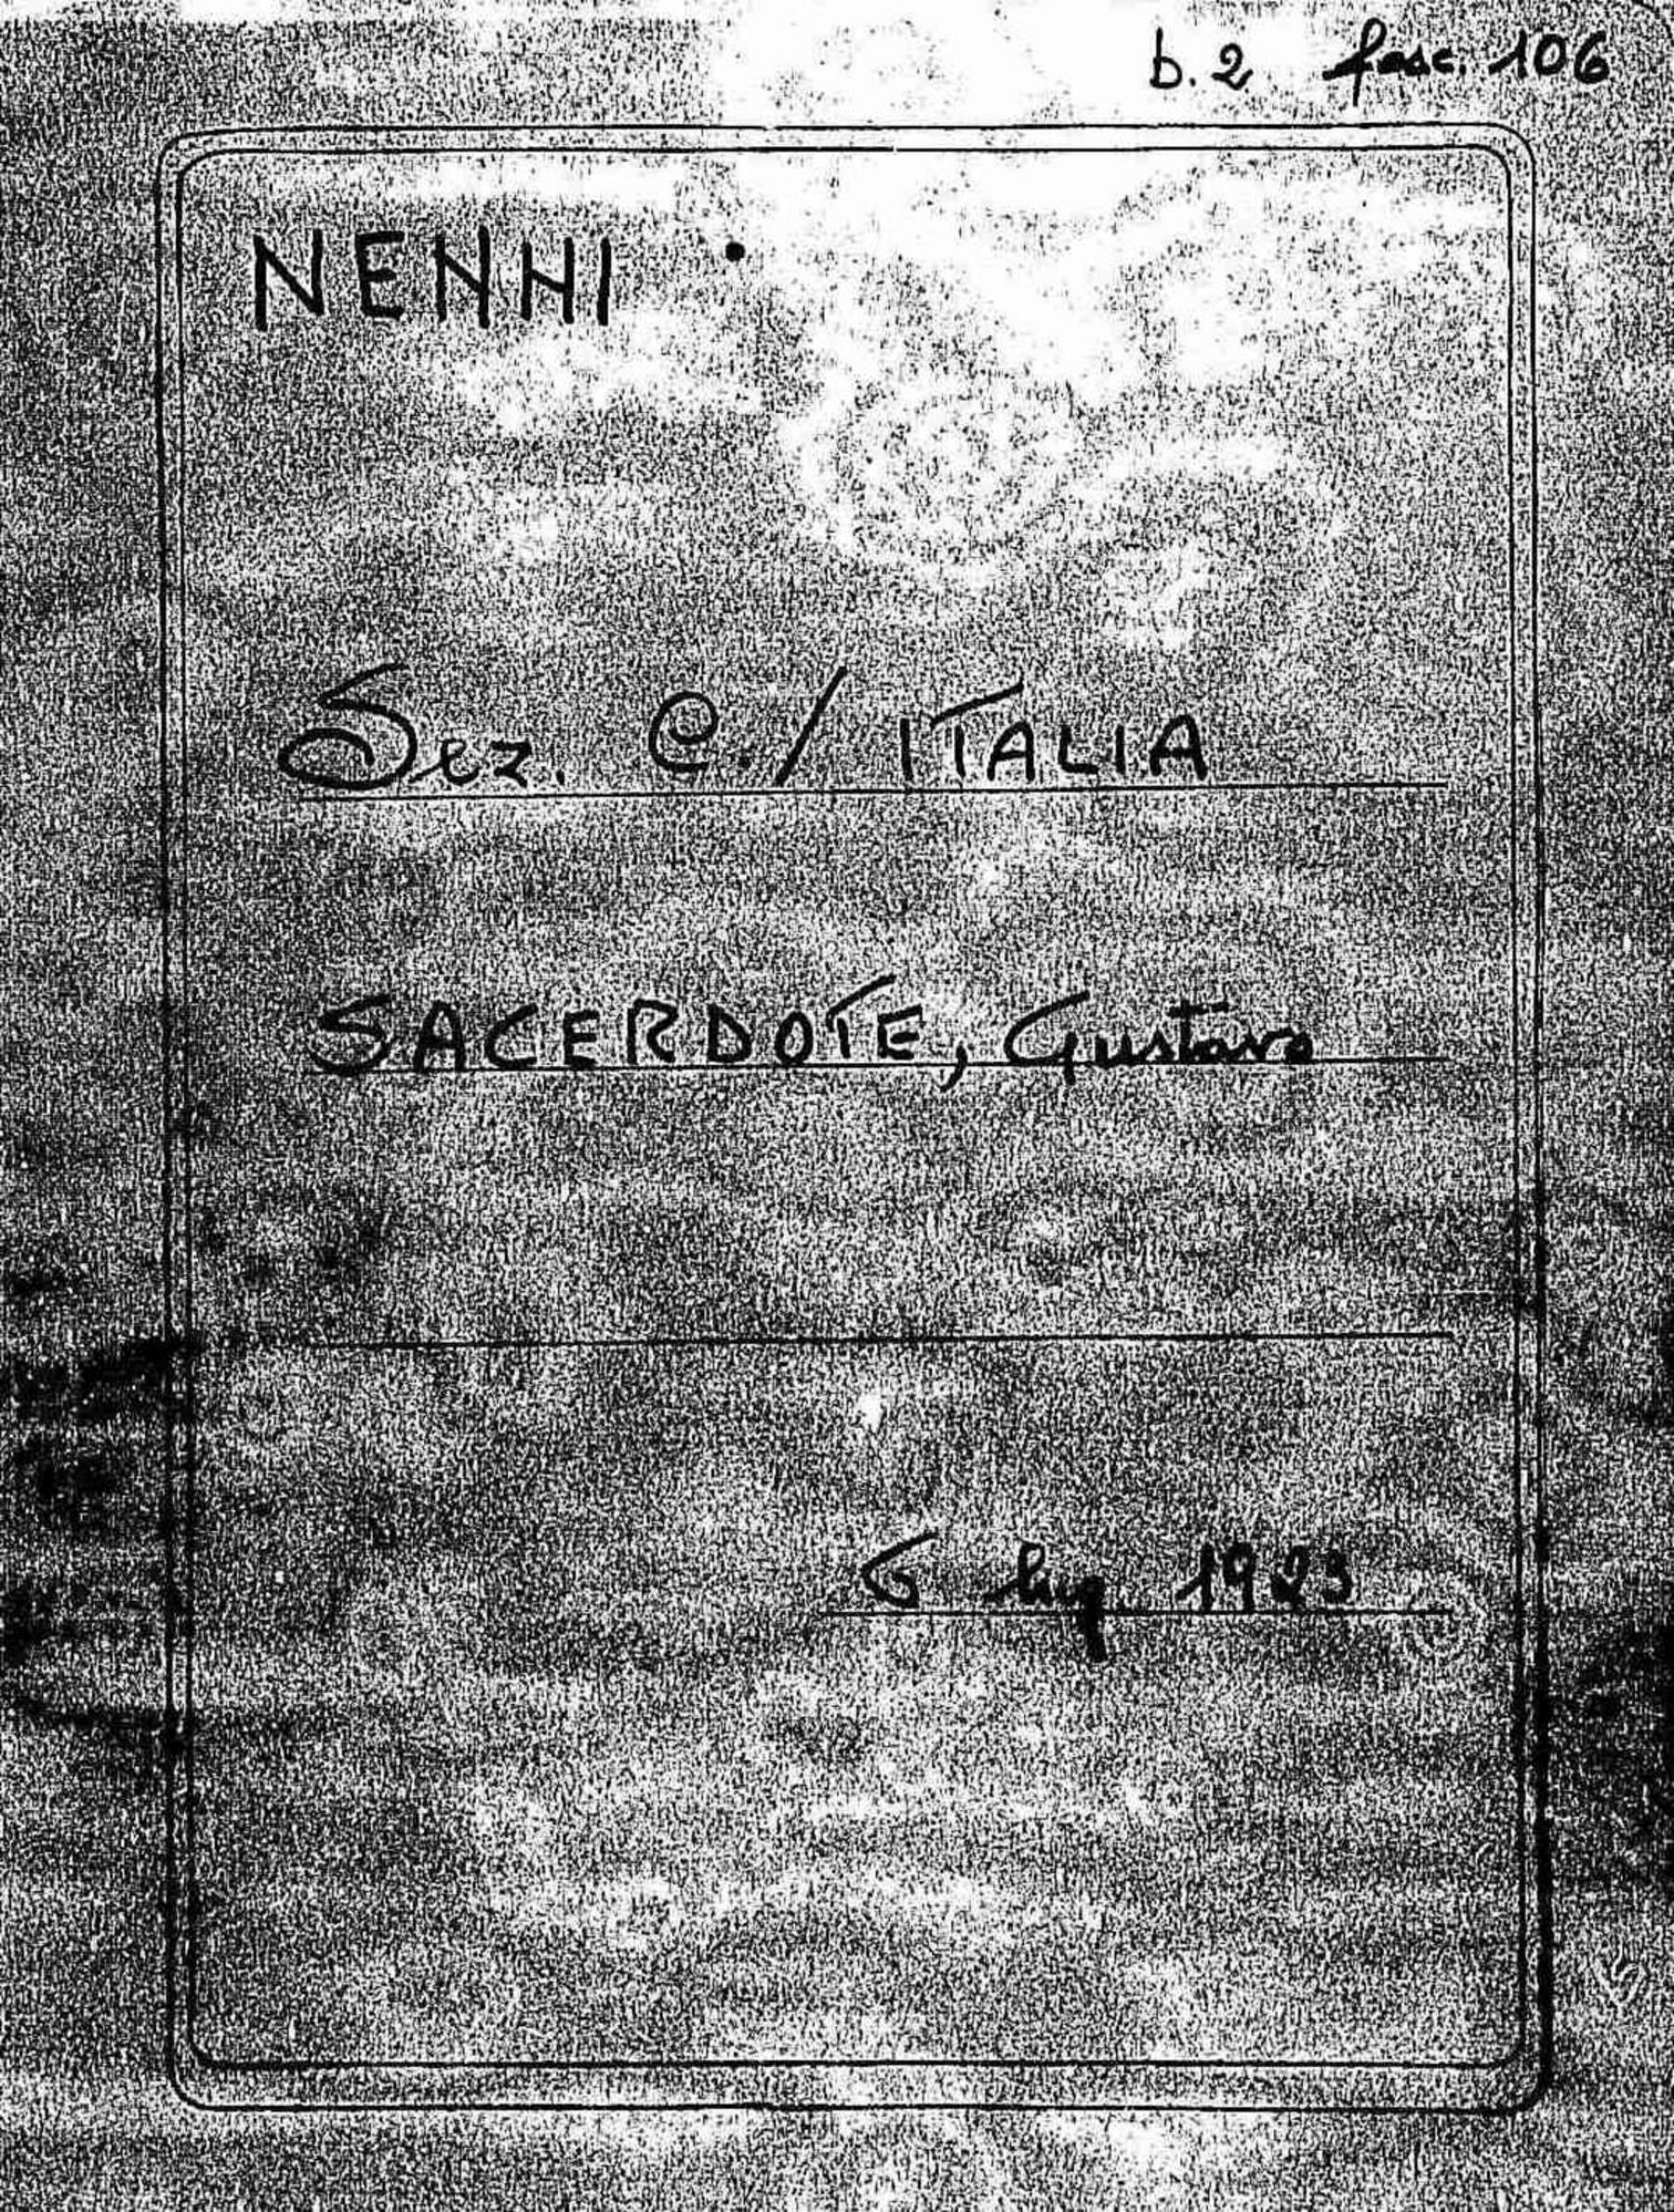 b. 2 fasc. 106
NENNI
Sez. C. / ITALIA
SACERDOTE, Gustavo
6 lug. 1923